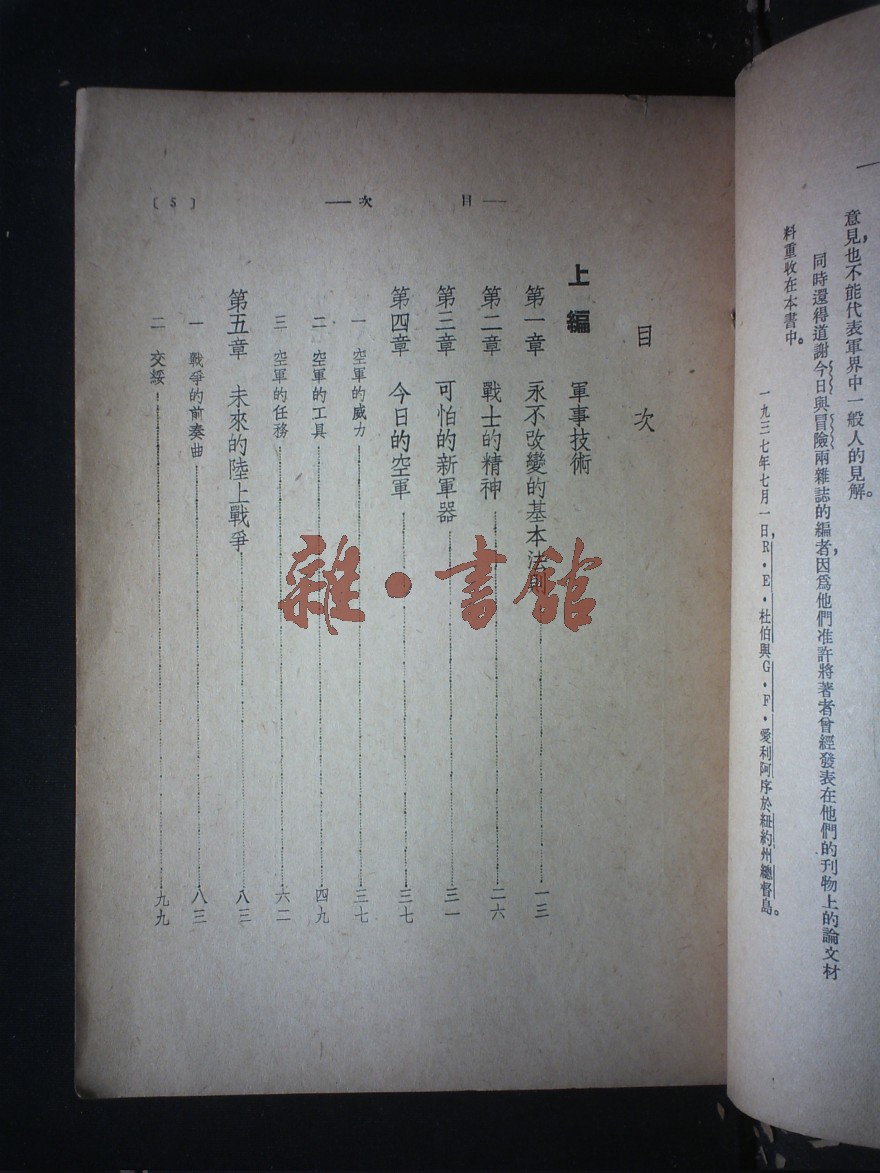 意見,也不能代表軍界中一般人的見解。
同時還得道謝今日與冒險兩雜誌的編者,因爲他們准許將著者曾經發表在他們的刊物上的論文材
料重收在本書中。
一九三七年七月一日,R·E·杜伯與G·F·愛利阿序於紐約州總督島。
目次
〔5〕
目次
上編 軍事技術
第一章 永不改變的基本法則 一三
第二章 戰士的精神 二六
第三章 可怕的新軍器 三一
第四章 今日的空軍 三七
一 空軍的威力 三七
二 空軍的工具 四九
三 空軍的任務 六二
第五章 未來的陸上戰爭 八三
一 戰爭的前奏曲 八三
二 交綏 九九
雜·書館